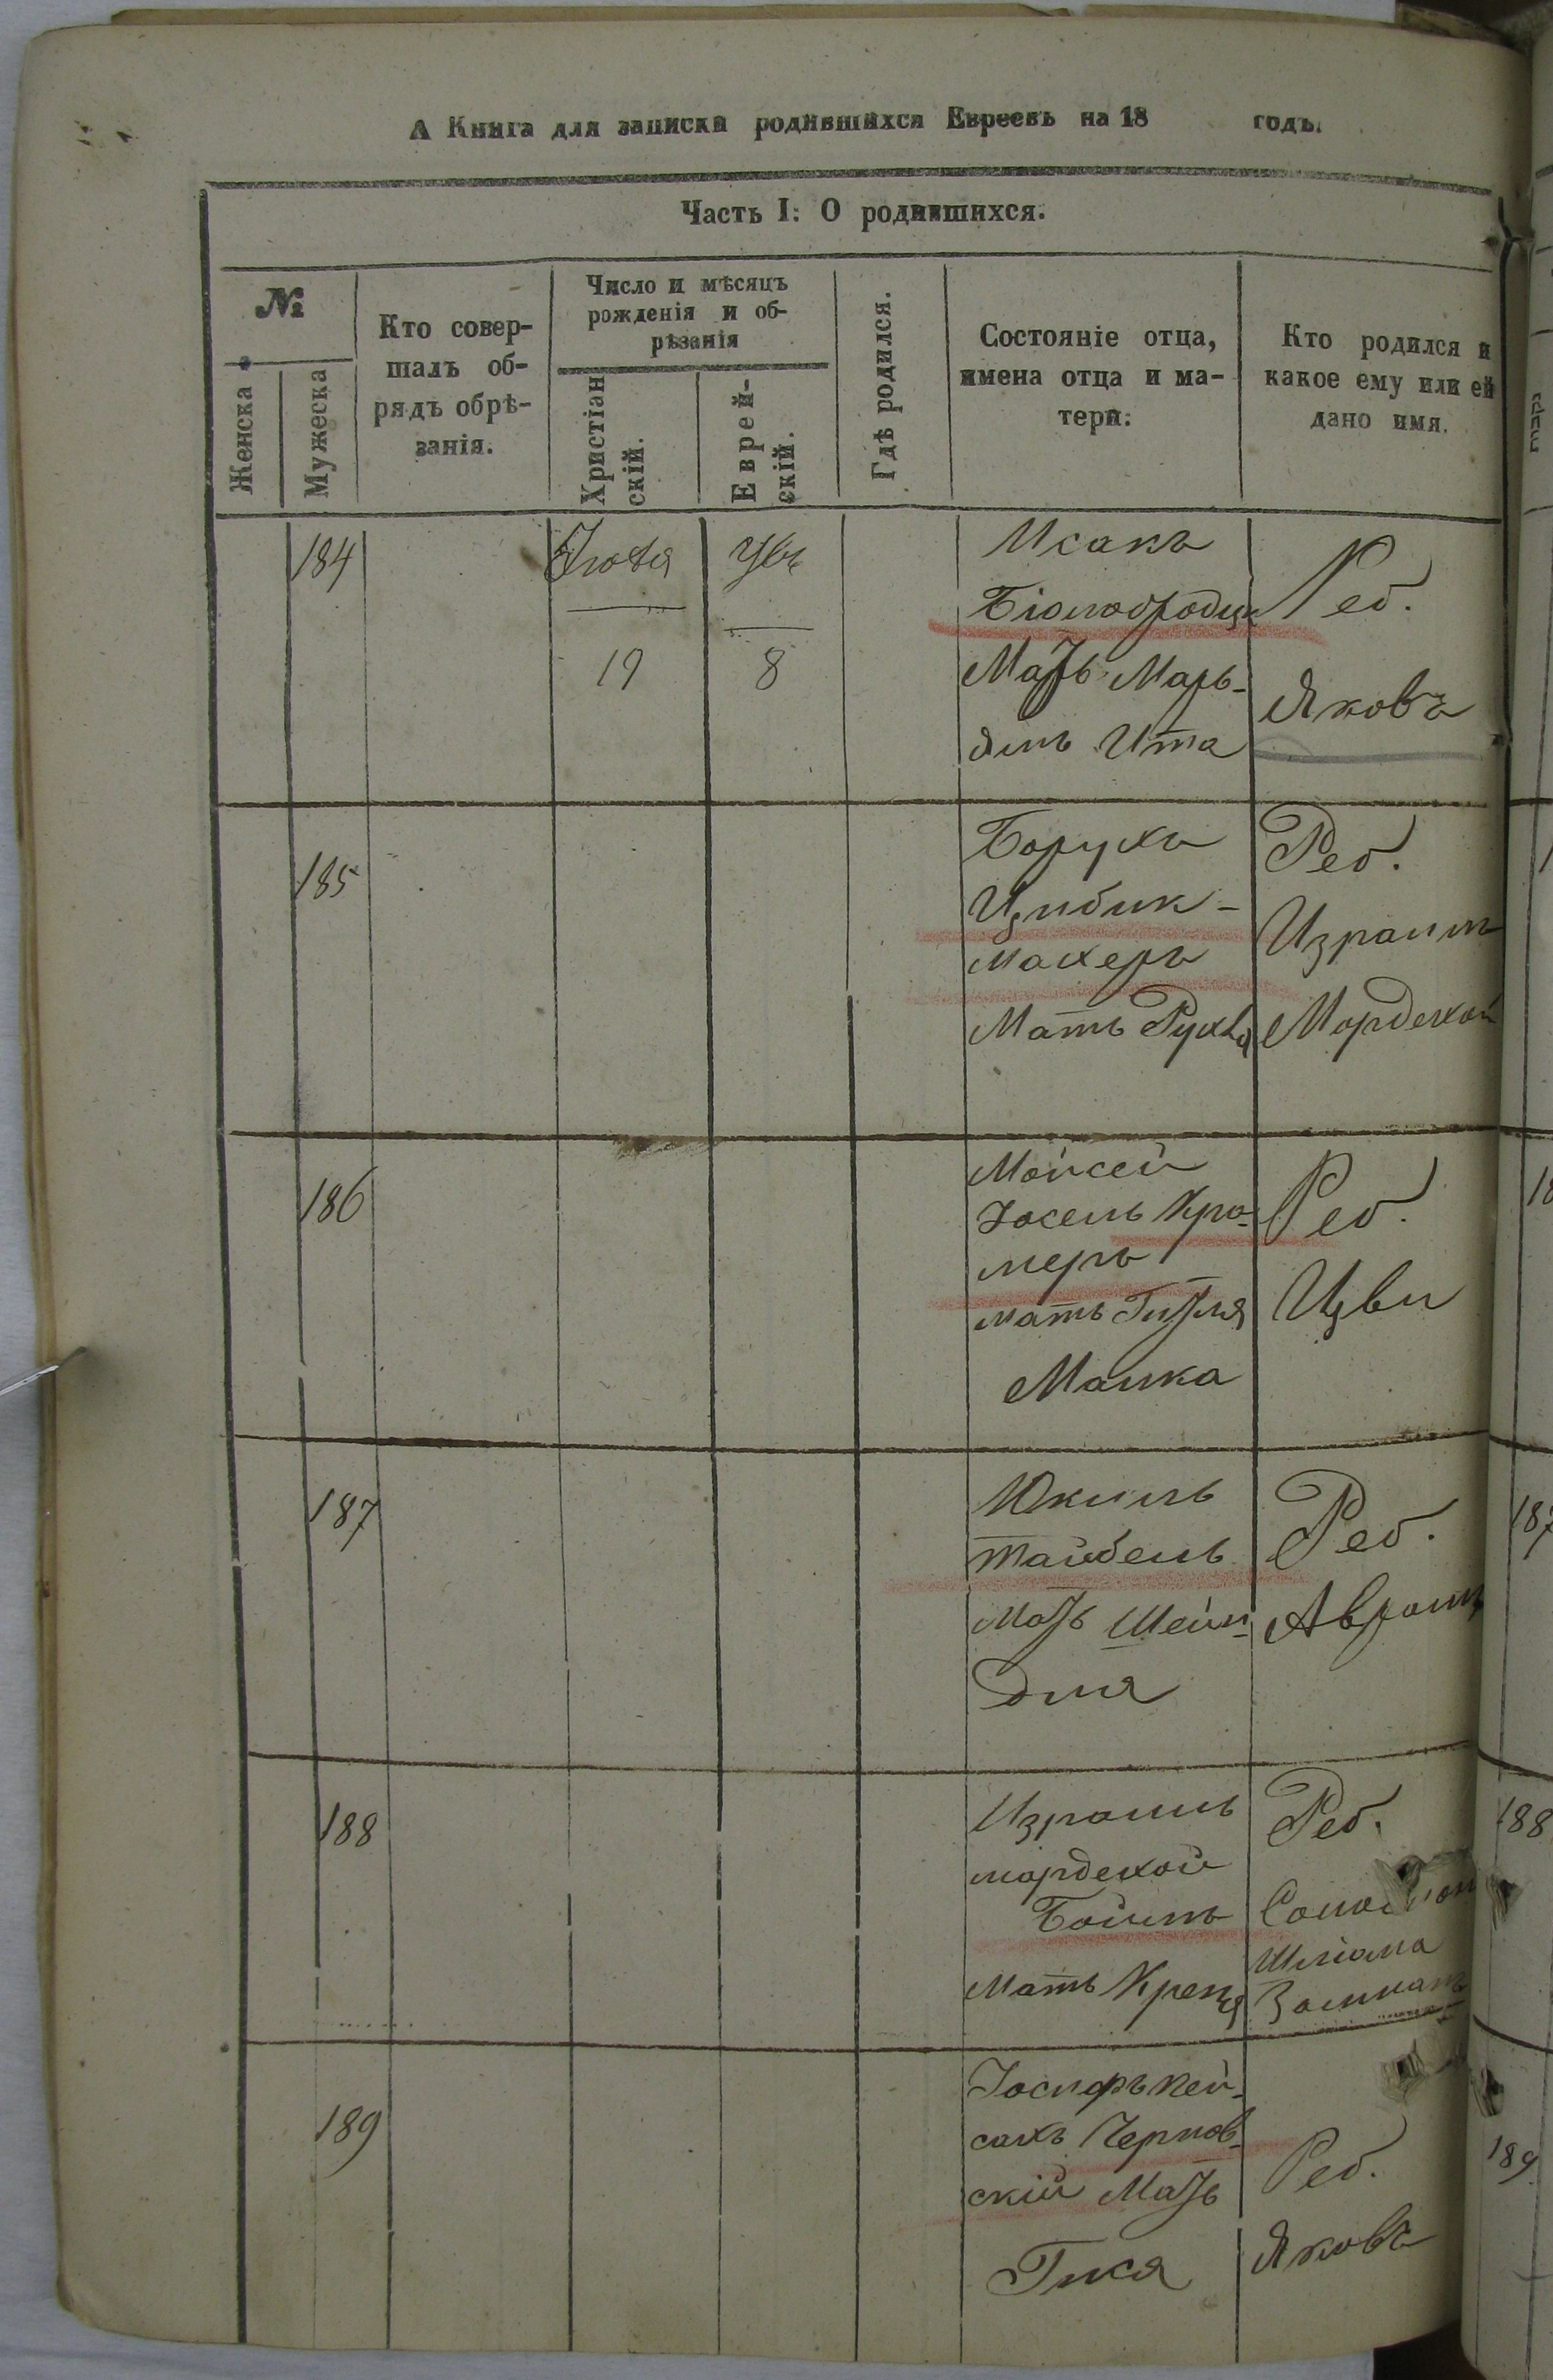 А Книга для записки родившихся Евреевъ на 18 годъ.
Часть I: О родившихся.
№
Женска
Мужеска
Кто совер-
шалъ об-
рядъ обрѣ-
занія.
Число и мѣсяцъ
рожденія и об-
рѣзанія
Христіан
скій.
Еврей-
скій.
Гдѣ родился.
Состояніе отца,
имена отца и ма-
тери.
Кто родился и
какое ему или ей
дано имя.
184
19
8
Исакъ
Мать Марь-
ямъ Ита
Реб.
Яковъ
185
Борухъ
Цибик-
махеръ
Мать Рухля
Реб.
Израиль
Мордехай
186
Мойсей
Іосель Кра-
меръ
мать Гитля
Малка
Реб.
Цви
187
Юкиль
Тайбель
Мать Шейн-
для
Реб.
Аврам
188
Израиль
Мордехай
Мать Крейця
Реб.
Шлёма
Залман
189
Іосифъ Пей-
сахъ Чернов-
скій Мать
Гися
Реб.
Яковъ
187
188
189